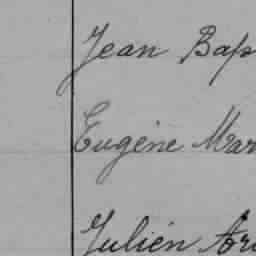 Jean Bap
Eugène Mar
Julien Ar